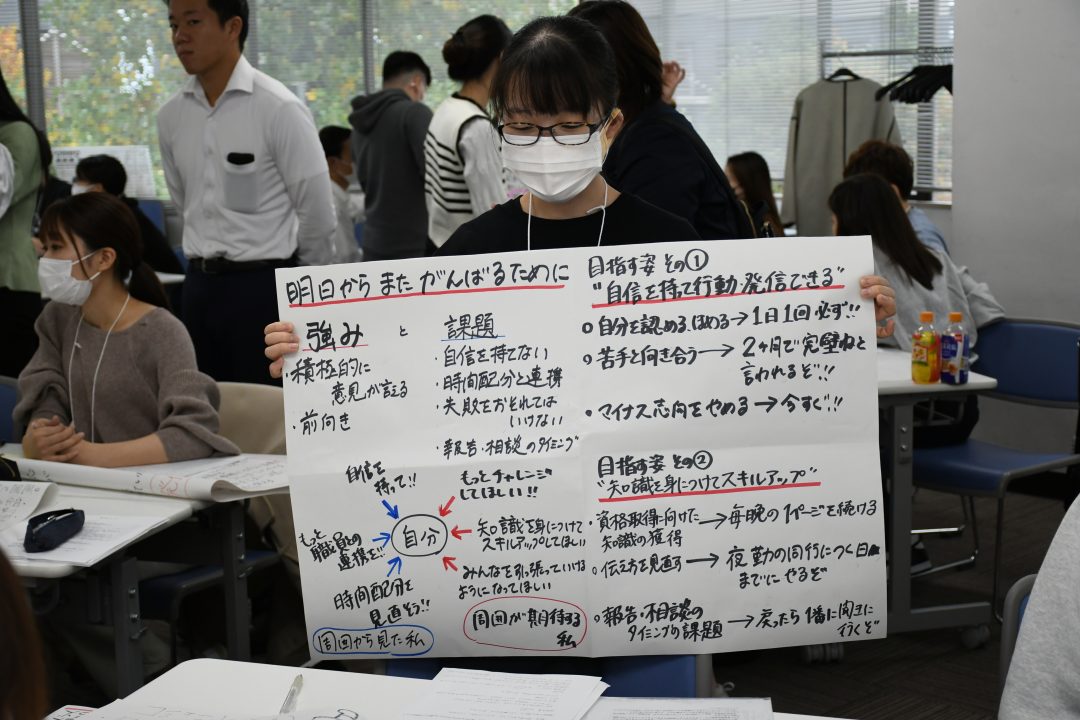 明日から また がんばるために
強み と 課題
・積極的に
意見が言える
・前向き
・自信を持てない
・時間配分と連携
・失敗をおそれては
いけない
・報告・相談のタイミング
自信を
持って!!
もっと
職員との
連携を!!
時間配分を
見直そう!!
自分
もっとチャレンジ
してほしい!!
知識を身につけて
スキルアップしてほしい
みんなを引っ張っていける
ようになってほしい
周囲から見た私
周囲が期待する
私
目指す姿 その①
"自信を持って行動、発信できる"
○自分を認める、ほめる→1日1回必ず!!
○苦手と向き合う→2ヶ月で完璧ねと
言われるぞ!!
○マイナス志向をやめる→今すぐ!!
目指す姿 その②
"知識を身につけてスキルアップ"
○資格取得に向けた
知識の獲得→毎晩の1ページを続ける
○伝え方を見直す→夜勤の同行につく日
までにやるぞ
○報告・相談の
タイミングが課題→戻ったら1番に聞きに
行くぞ